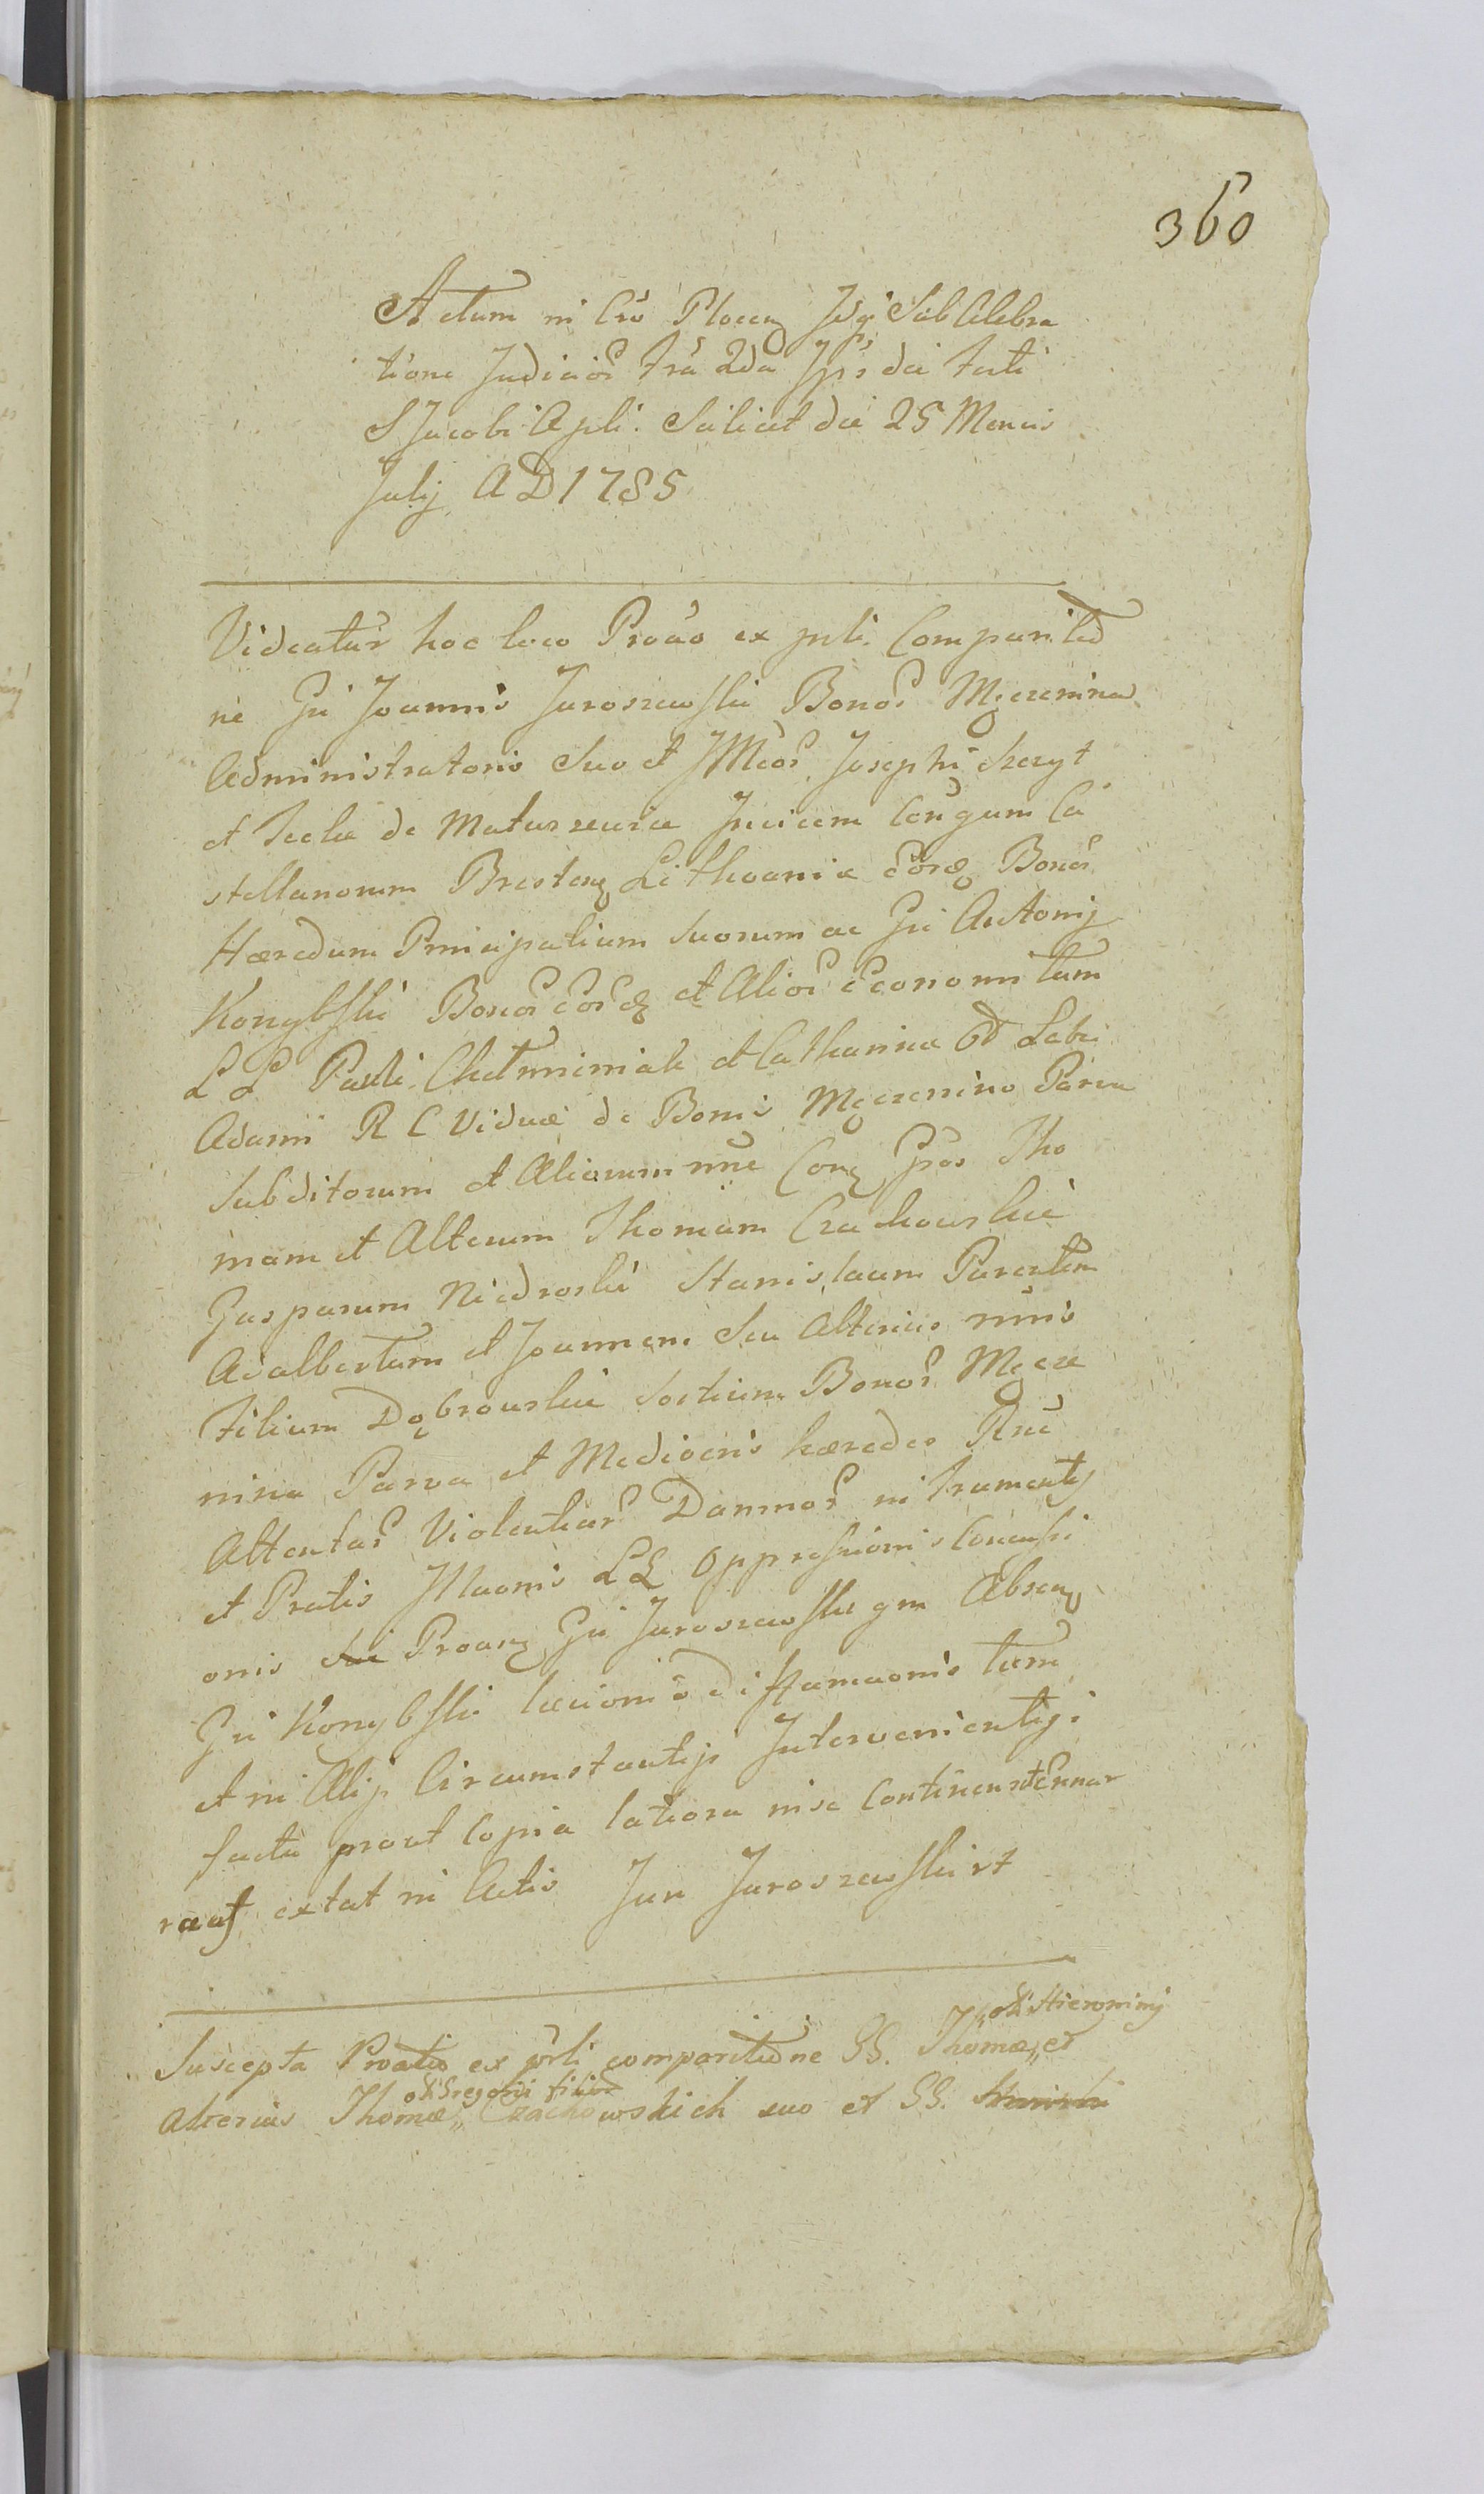 360
Actum in Cro Plocen Sub Celebra
tione Judicior fra 2da Ips die festi
S Jacobi Apli. Scilicet die 25 Mensis
Julij AD 1785
Videatur hoc loco Proāo ex psti. Comparitio
ne Gsi Joannis Jaroszewski Bonor Męczenina
Administratoris Suo et JMcor Josephi Szczyt
et Teclæ de Matuszewice Invicem Conjgum Ca
stellanorum Bresten Lithvaniæ Bonor
Hæredum Principalium Suorum ac Gsi Antonij
Konybski Bonor et Alior Economi tum
LL Pauli Chetmniniak et Catharinæ Ot Labi
Adami R C Viduæ de Bonis Męczenino Parva
Subditorum et Aliorum nne Con Gsos Tho
mam et Alterum Thomam Czachowskie
Gasparum Niedroski Stanislaum Parentem
Adalbertum et Joannem Seu Alterius nnis
Filium Dąbrowskie Sortium Bonor Męcze
nina Parva et Mediocris hæredes Rne
Attentar Violentiar Damnor in frumentis
et Pratis Illaonis LL Oppressionis Concussi
onis Proan Gsi Jaroszewski gm Absen
Gsi Konybski læsionis Diffamaonis tum
et in Alijs Circumstantijs Intervenientiis
facta prout Copia latiora in se Continens
extat in Actis Jan Jaroszewski rt
Suscepta Proatio ex prsti comparitione GG. Thomæ,, et
oli Hieronimi
Alterius Thomæ,, Czachowskich suo et GG.
oli Gregorii filior